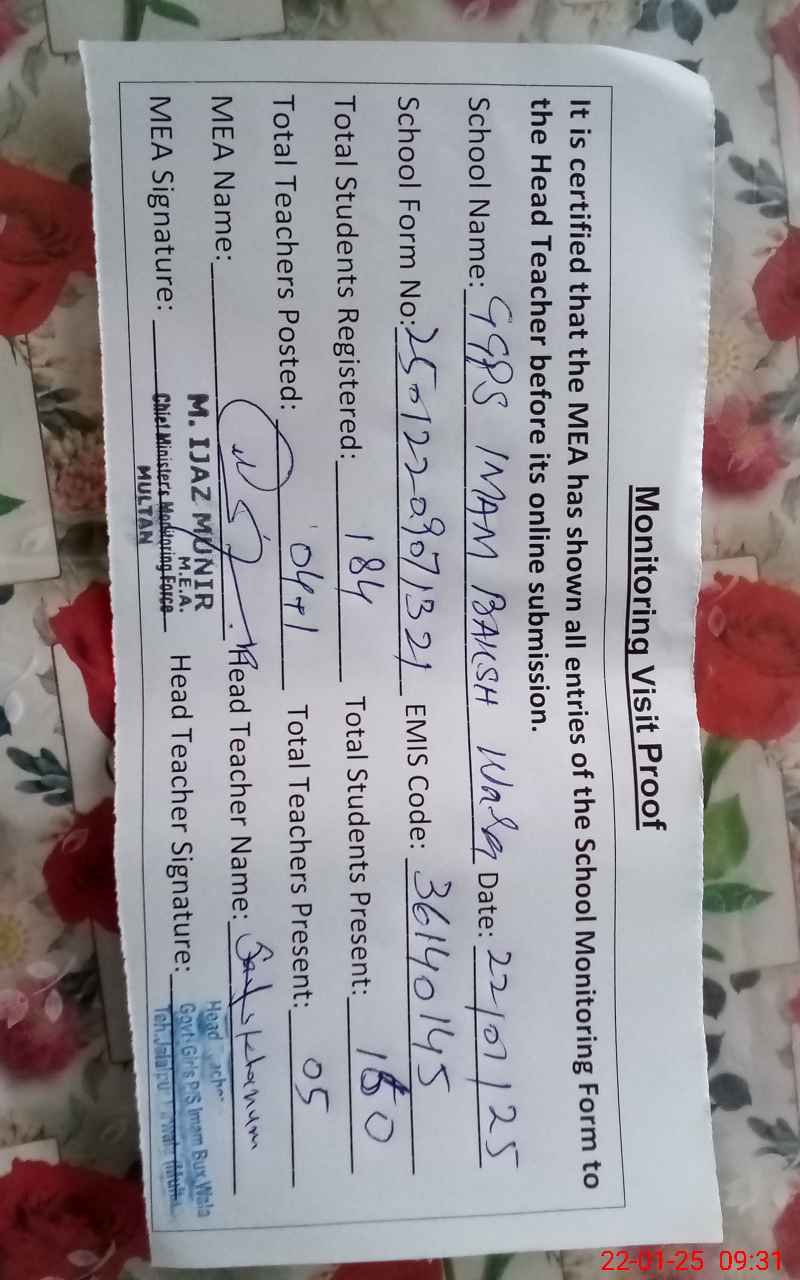 Monitoring Visit Proof
It is certified that the MEA has shown all entries of the School Monitoring Form to
the Head Teacher before its online submission.
School Name: GGPS IMAM BAKSH Wala Date: 22/01/25
School Form No: 25012209071321 EMIS Code: 36140145
Total Students Registered: 184 Total Students Present: 160
Total Teachers Posted: 04+1 Total Teachers Present: 05
MEA Name: Head Teacher Name: Khanum
MEA Signature: Head Teacher Signature:
M. IJAZ MUNIR
M.E.A.
Chief Minister's Monitoring Force
MULTAN
Head
Govt: Girls P/S Imam Bux Wala
Teh.
22-01-25 09:31